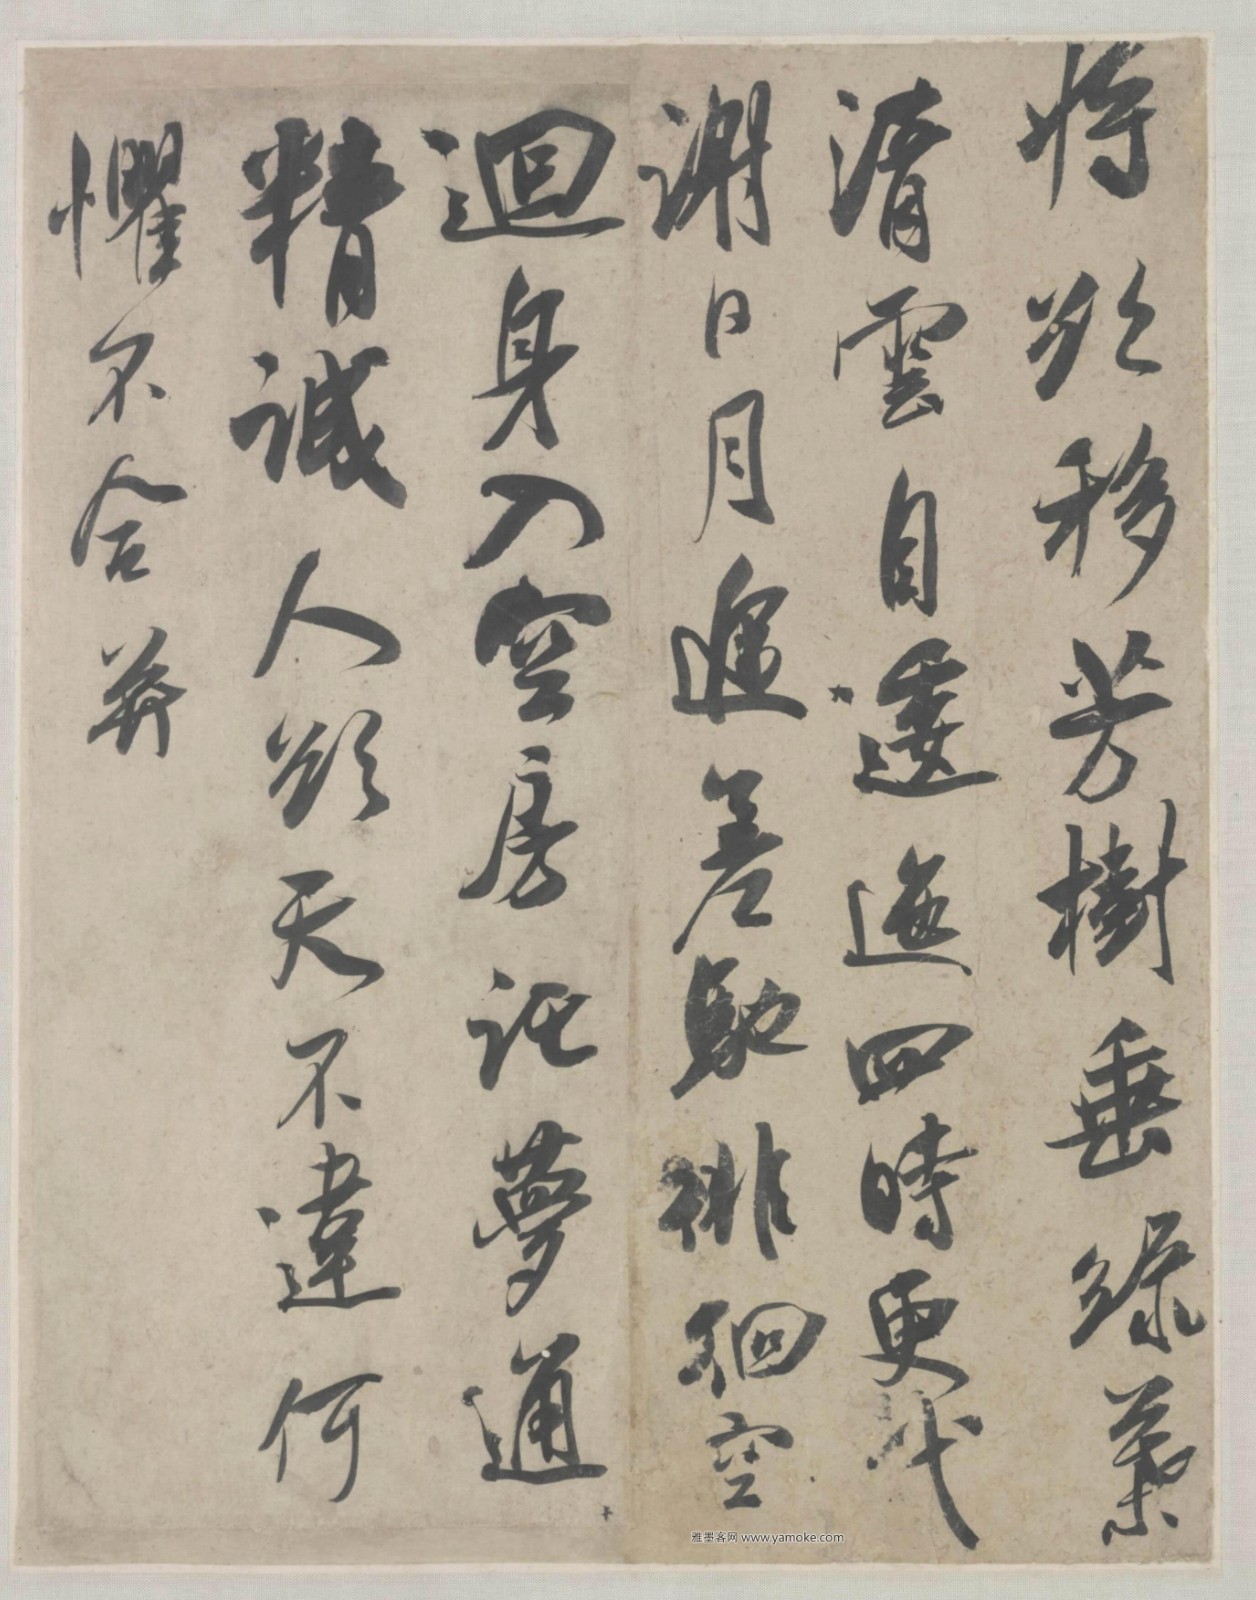 將欲移芳樹垂綠葉
清雲自逶迤四時更代
謝日月遞差馳徘徊空
迴身入空房託夢通
精誠人欲天不違何
懼不合并
雅墨客网 www.yamoke.com